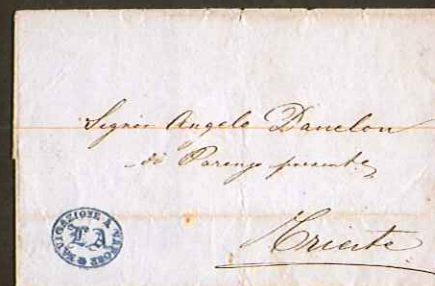 Signor Angelo Danelon
di Parenzo presente
Trieste
NAVIGAZIONE A VAPORE
LA